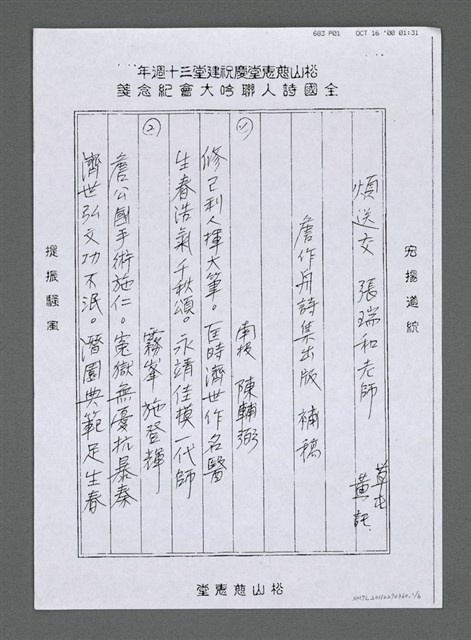 683 P01 OCT 16 '00 01:31
松山慈惠堂慶祝建堂三十週年
全國詩人聯吟大會紀念箋
宏揚道統
煩送交 張瑞和老師
草屯 黃 託.
詹作舟詩集出版 補稿
(1)
南投 陳輔弼
修己利人揮大筆。匡時濟世作名醫
生春浩氣千秋頌。永靖佳模一代師
(2)
霧峯 施登輝
詹公國手術施仁。冤獄無憂抗暴秦
濟世弘文功不泯。潛園典範足生春
提振騷風
松山慈惠堂